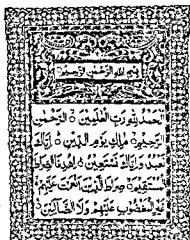 بِسْمِ اللهِ الرَّحْمٰنِ الرَّحِيْمِ
اَلْحَمْدُ لِلّٰهِ رَبِّ الْعٰلَمِيْنَ ۝ الرَّحْمٰنِ
الرَّحِيْمِ ۝ مٰلِكِ يَوْمِ الدِّيْنِ ۝ اِيَّاكَ
نَعْبُدُ وَاِيَّاكَ نَسْتَعِيْنُ ۝ اِهْدِنَا الصِّرَاطَ
الْمُسْتَقِيْمَ ۝ صِرَاطَ الَّذِيْنَ اَنْعَمْتَ عَلَيْهِمْ
غَيْرِ الْمَغْضُوْبِ عَلَيْهِمْ وَلَا الضَّآلِّيْنَ